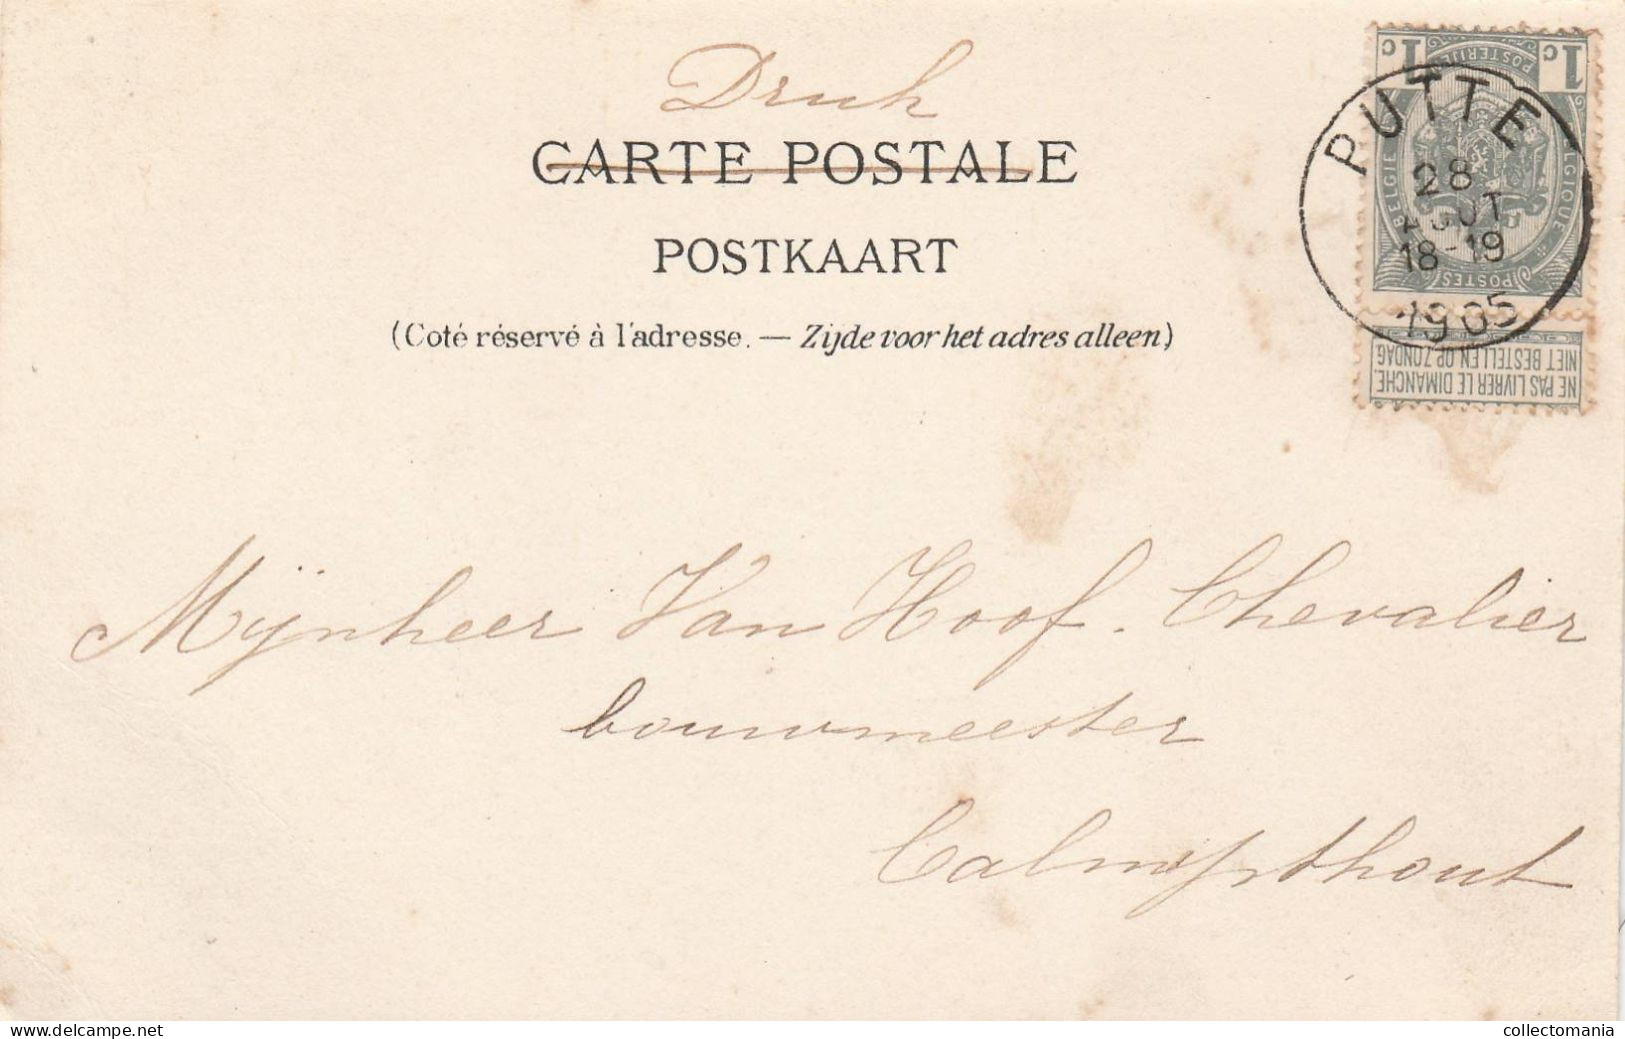 Druk
CARTE POSTALE
POSTKAART
(Coté réservé à l'adresse. — Zijde voor het adres alleen)
1c 1c
POSTERIJEN
BELGIE BELGIQUE
POSTES
NE PAS LIVRER LE DIMANCHE.
NIET BESTELLEN OP ZONDAG
PUTTE
28
AOUT
18-19
1905
Mijnheer Van Hoof. Chevalier
bouwmeester
Calmpthout
collectomania